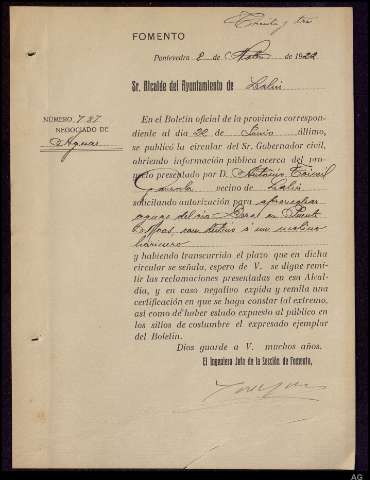 Treinta y tres
FOMENTO
Pontevedra 8 de de 1922
Sr. Alcalde del Ayuntamiento de Lalin
NÚMERO 787
NEGOCIADO DE
Aguas
En el Boletín oficial de la provincia correspon-
diente al día 22 de Junio último,
se publicó la circular del Sr. Gobernador civil,
abriendo información pública acerca del pro-
yecto presentado por D. Antonio
vecino de Lalin
solicitando autorización para aprovechar
aguas del río en
con destino á un molino
harinero
y habiendo transcurrido el plazo que en dicha
circular se señala, espero de V. se digne remi-
tir las reclamaciones presentadas en esa Alcal-
día, y en caso negativo expida y remita una
certificación en que se haga constar tal extremo,
así como de haber estado expuesto al público en
los sitios de costumbre el expresado ejemplar
del Boletín.
Dios guarde a V. muchos años.
El Ingeniero Jefe de la Sección de Fomento,
AG